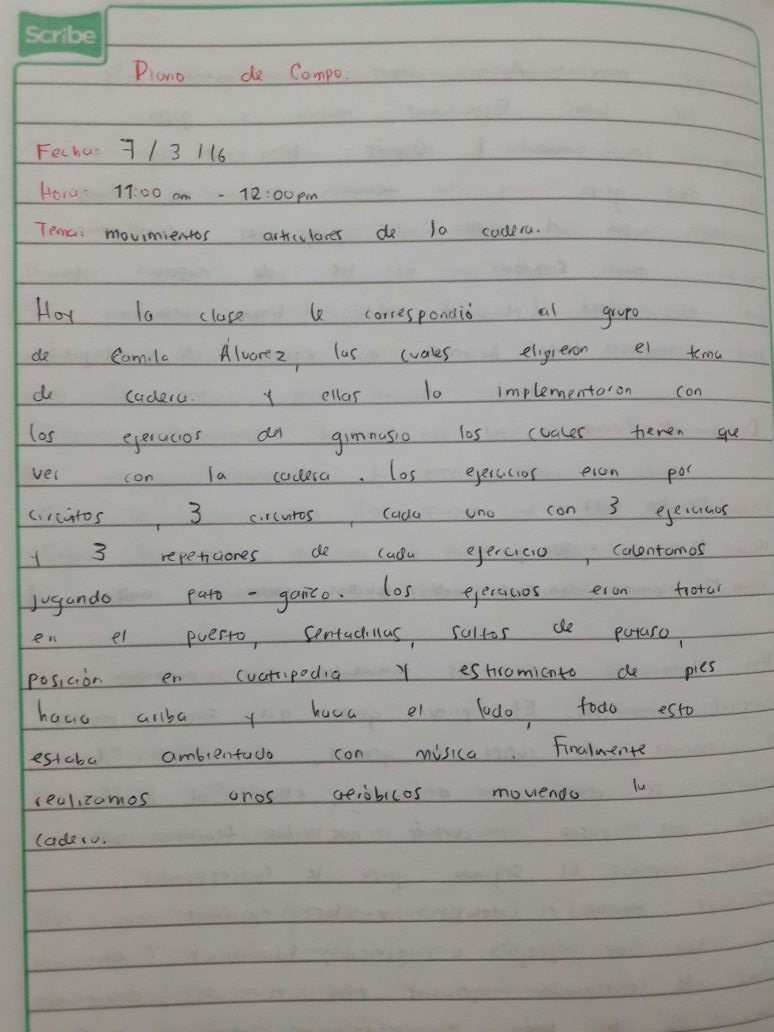 Scribe
Diario de Campo.
Fecha: 7 / 3 / 16
Hora: 11:00 am - 12:00 pm
Tema: movimientos articulares de la cadera.
Hoy la clase le correspondió al grupo
de Camila Álvarez, las cuales eligieron el tema
de cadera. y ellas lo implementaron con
los ejercicios del gimnasio los cuales tienen que
ver con la cadera. Los ejercicios eran por
circuitos, 3 circuitos, cada uno con 3 ejercicios
y 3 repeticiones de cada ejercicio, calentamos
jugando pato - ganzo. Los ejercicios eran trotar
en el puesto, sentadillas, saltos de payaso,
posición en cuatripodia y estiramiento de pies
hacia arriba y hacia el lado, todo esto
estaba ambientado con música. Finalmente
realizamos unos aeróbicos moviendo la
cadera.